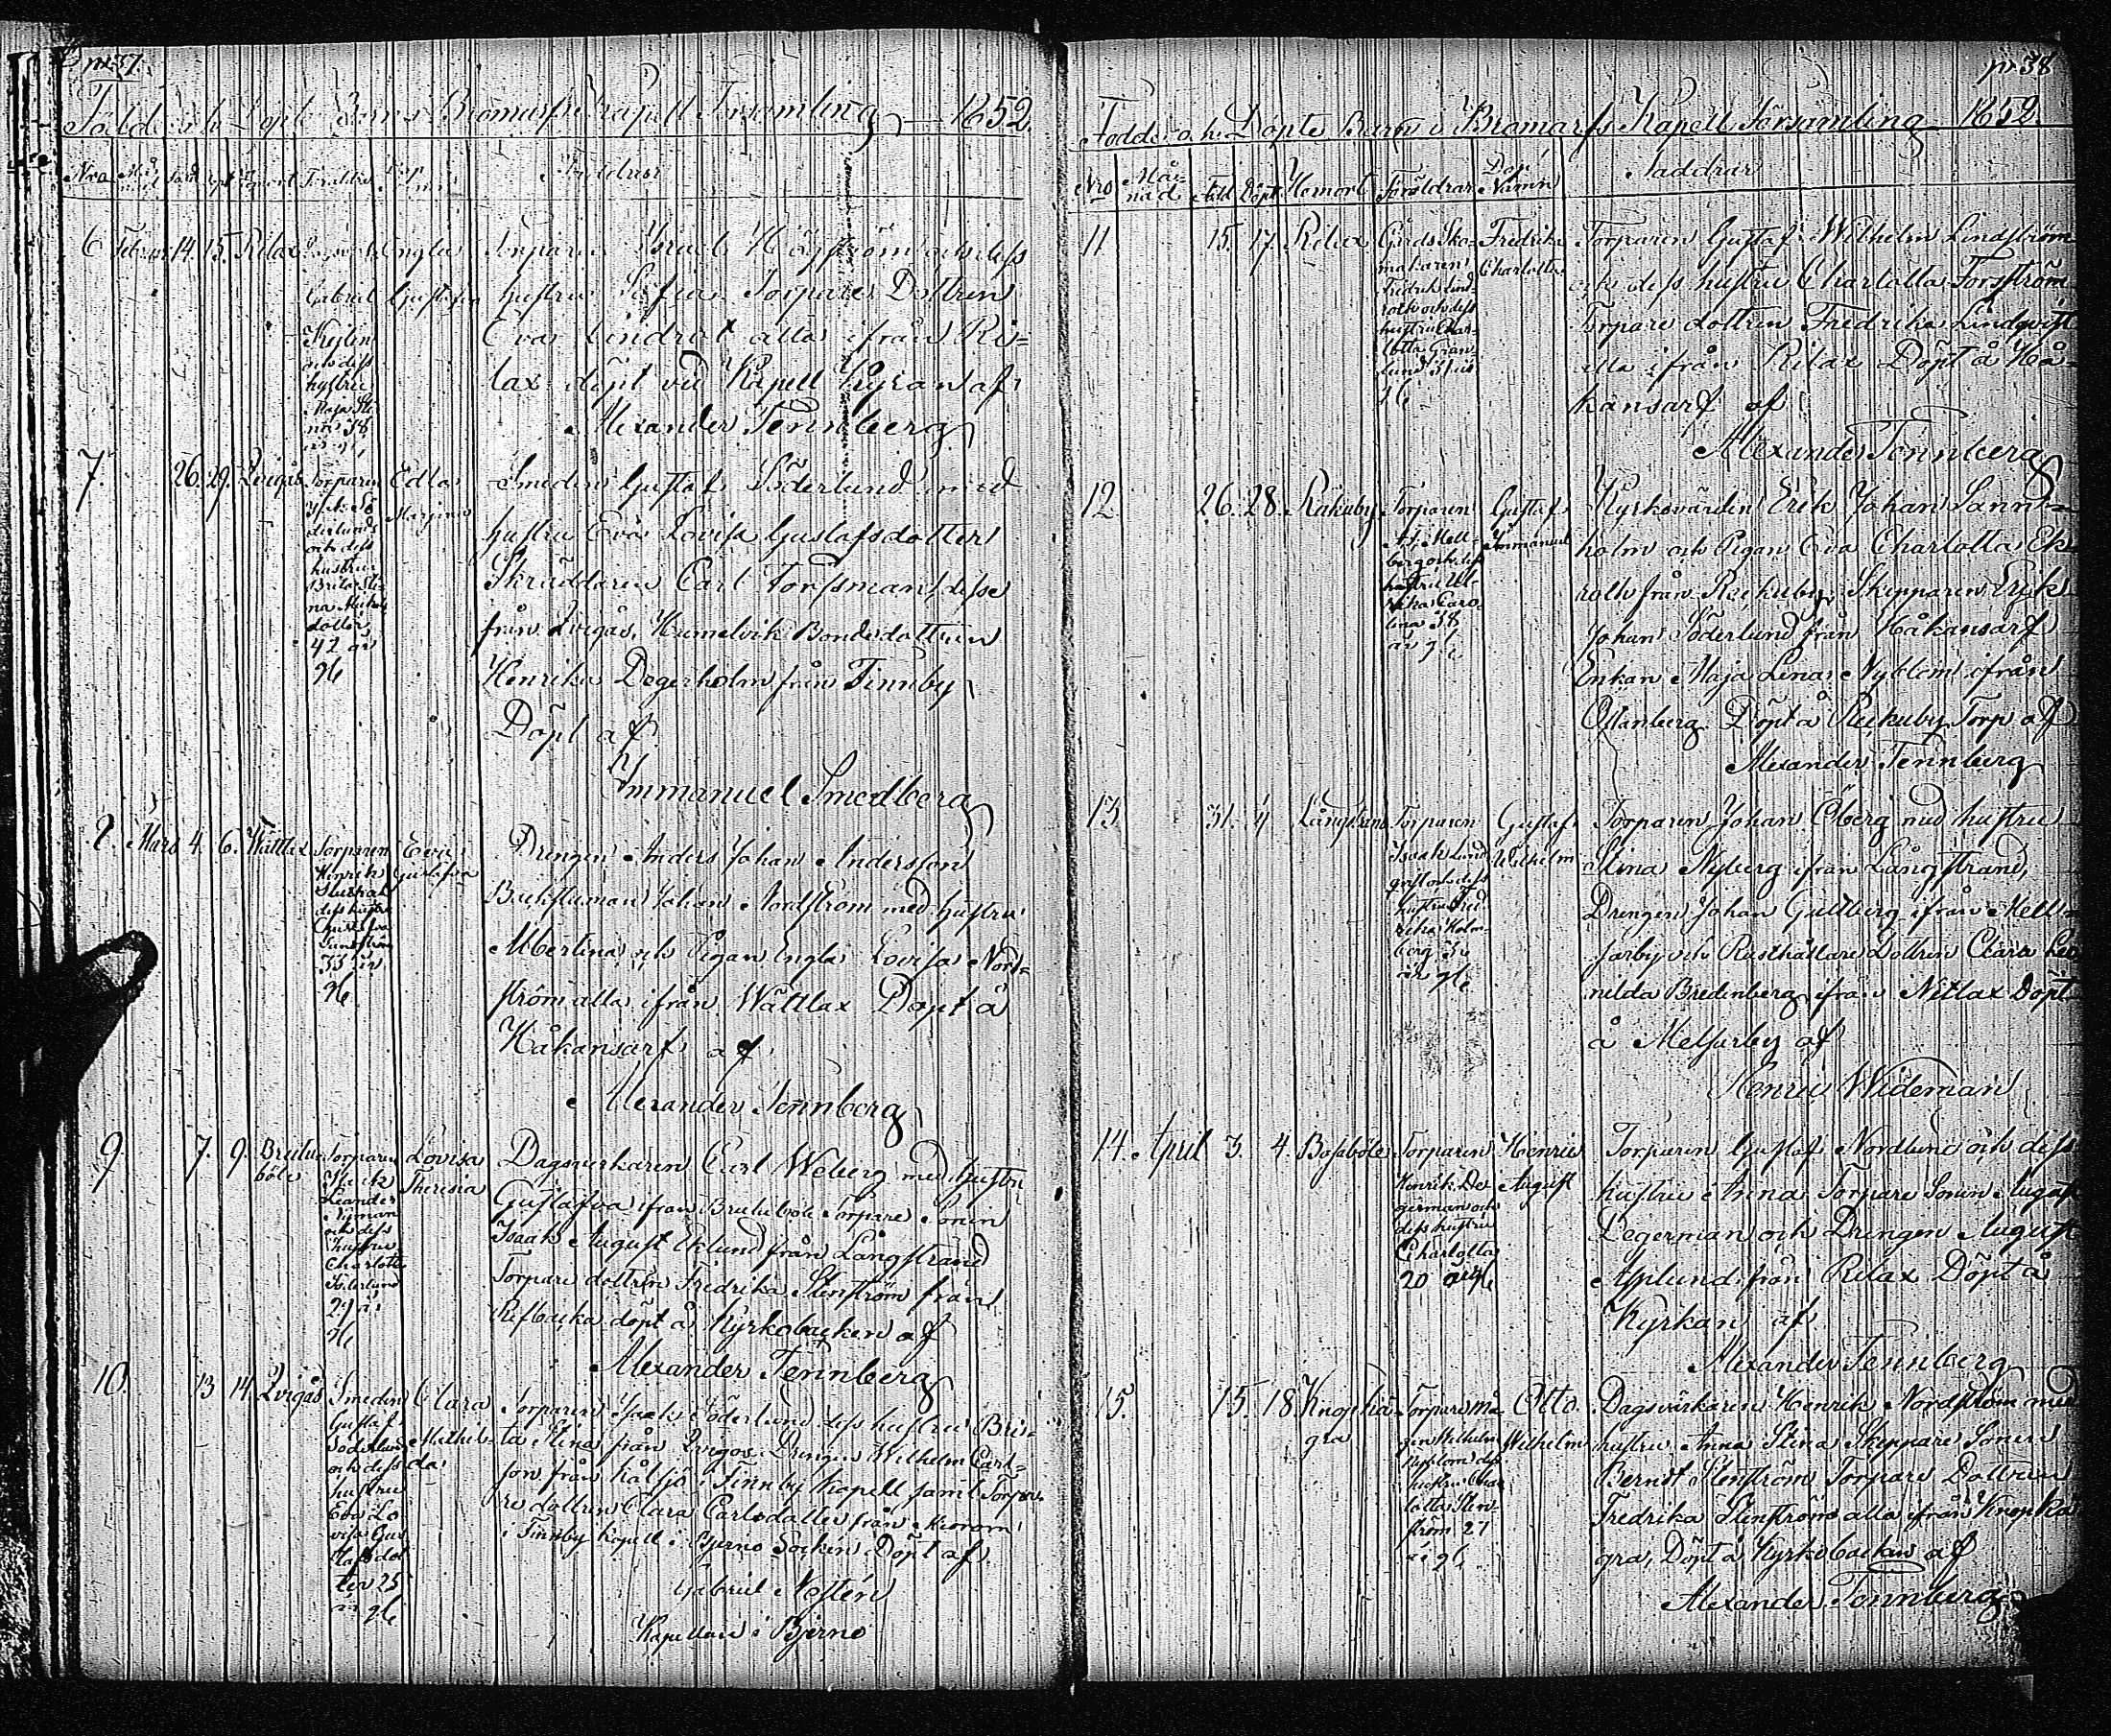 pr 37.
Född och Döpte Barn i Bromarfs Kapell Församling 1852.
Nro Månad Född Döpt Hemort Föräldrar Dop Namn
Faddrar
6 Februar 14. 15. Rilax
Gabriel
och dess
hustru
Maja Sti-
na 38
Engla
Gustafva
Torparen Israel Högström och dess
hustru Torpare Dottren
Eva Lindrot alla ifrån Ri=
lax döpt vid Kapell Kyrkan af
Alexander Tennberg
7. 26. 29. Qvigås
Torparen
Isak Sö-
derlund
och dess
hustru
Brita Sti-
na
dotter
42 år
Edla
Smeden Gustaf Söderlund med
hustru Eva Lovisa Gustafsdotter
Skräddaren Carl Forssman, desse
från Qvigås, Bondedottren
Henrika Degerholm från Finnby
Döpt af
Immanuel Smedberg
8. Mars 4. 6. Wättlax
Torparen
Henrik
dess hustru
Gustafva
33 år
Eva
Gustafva
Drengen Anders Johan Andersson
Johan Nordström med hustru
Albertina och Pigan Engla Lovisa Nord=
ström alla ifrån Wättlax Döpt å
Håkansarf af
Alexander Tennberg
9. 7. 9.
böle
Torparen
Isack
Leander
Nyman
och dess
hustru
Charlotta
29 år
Lovisa
Theresia
Dagsverkaren Carl Weberg med hustru
Gustafva ifrån Torpare Sonen
Isaak August från Långstrand
Torpare dottren Fredrika Stenström från
Refbacka döpt å Kyrkobacken af
Alexander Tennberg
10. 13 14. Qvigås
Smeden
Gustaf
Söderlund
och dess
hustru
Eva Lo-
visa Gus
tafs dot
ter 25
år
Clara
Mathil-
da
Torparen Isaak Söderlund dess hustru Bri-
ta Stina från Qvigos Drengen Wilhelm Carl-
son från i Finnby Kapell samt Torpa-
re dottren Clara Carlsdotter från
i Finnby Kapell i Bjerno Socken Döpt af
Gabriel
Kapellan i Bjerno
pr 38
Födde och Döpte Barn i Bromarfs Kapell Församling 1852.
Nro Månad Född Döpt Hemort Föräldrar Dop Namn
Faddrar
11 15. 17. Rilax
Gårds Sko-
makaren
Fredrik Lind-
roth och dess
hustru Char-
lotta Gran-
lund 31 år
Fredrika
Charlotta
Torparen Gustaf Wilhelm Lindström
och dess hustru Charlotta Forsström
Torpare dottren Fredrika Lindqvist
alla ifrån Rilax Döpt å Hå-
kansarf af
Alexander Tennberg
12. 26. 28. Räkuby
Torparen
Mell-
berg och dess
hustru Ul-
rika Caro-
lina 38
år
Gustaf
Immanuel
Kyrkovärden Erik Johan Sann=
holm och Pigan Eva Charlotta Ek-
roth från Räkuby, Skepparen Erik
Johan Söderlund från Håkansarf
Enkan Maja Lena Nyblom ifrån
Östanberg Döpt å Räkuby Torp af
Alexander Tennberg
13 31. 4 Långstrand
Torparen
Isaak Lind
qvist och dess
hustru Fred-
rika Holm-
berg
år
Gustaf
Wilhelm
Torparen Johan Öberg med hustru
Stina Nyberg ifrån Långstrand,
Drengen Johan Gullberg ifrån Mell-
sarby och Rusthållare Dottren Clara
Bredenberg ifrån Nitlax Döpt
å Melsarby af
Henric Wideman
14. April 3. 4. Bossböle
Torparen
Henrik De-
german och
dess hustru
Charlotta
20 år
Henric
August
Torparen Gustaf Nordlund och dess
hustru Anna Torpare Sonen August
Degerman och Drengen August
Asplund från Rilax Döpt å
Kyrkan af
Alexander Tennberg
15. 15. 18. Knopkä-
gra
Torpare må-
gen Wilhelm
Nyblom dess
hustru Char
lotta Sten-
ström 27
år
Otto
Wilhelm
Dagsvärkaren Henrik Nordström med
hustru Anna Stina Skeppare Sonen
Berndt Stenström Torpare Dottren
Fredrika Stenström alla ifrån Knopkä
gra, Döpt å Kyrkobacken af
Alexander Tennberg